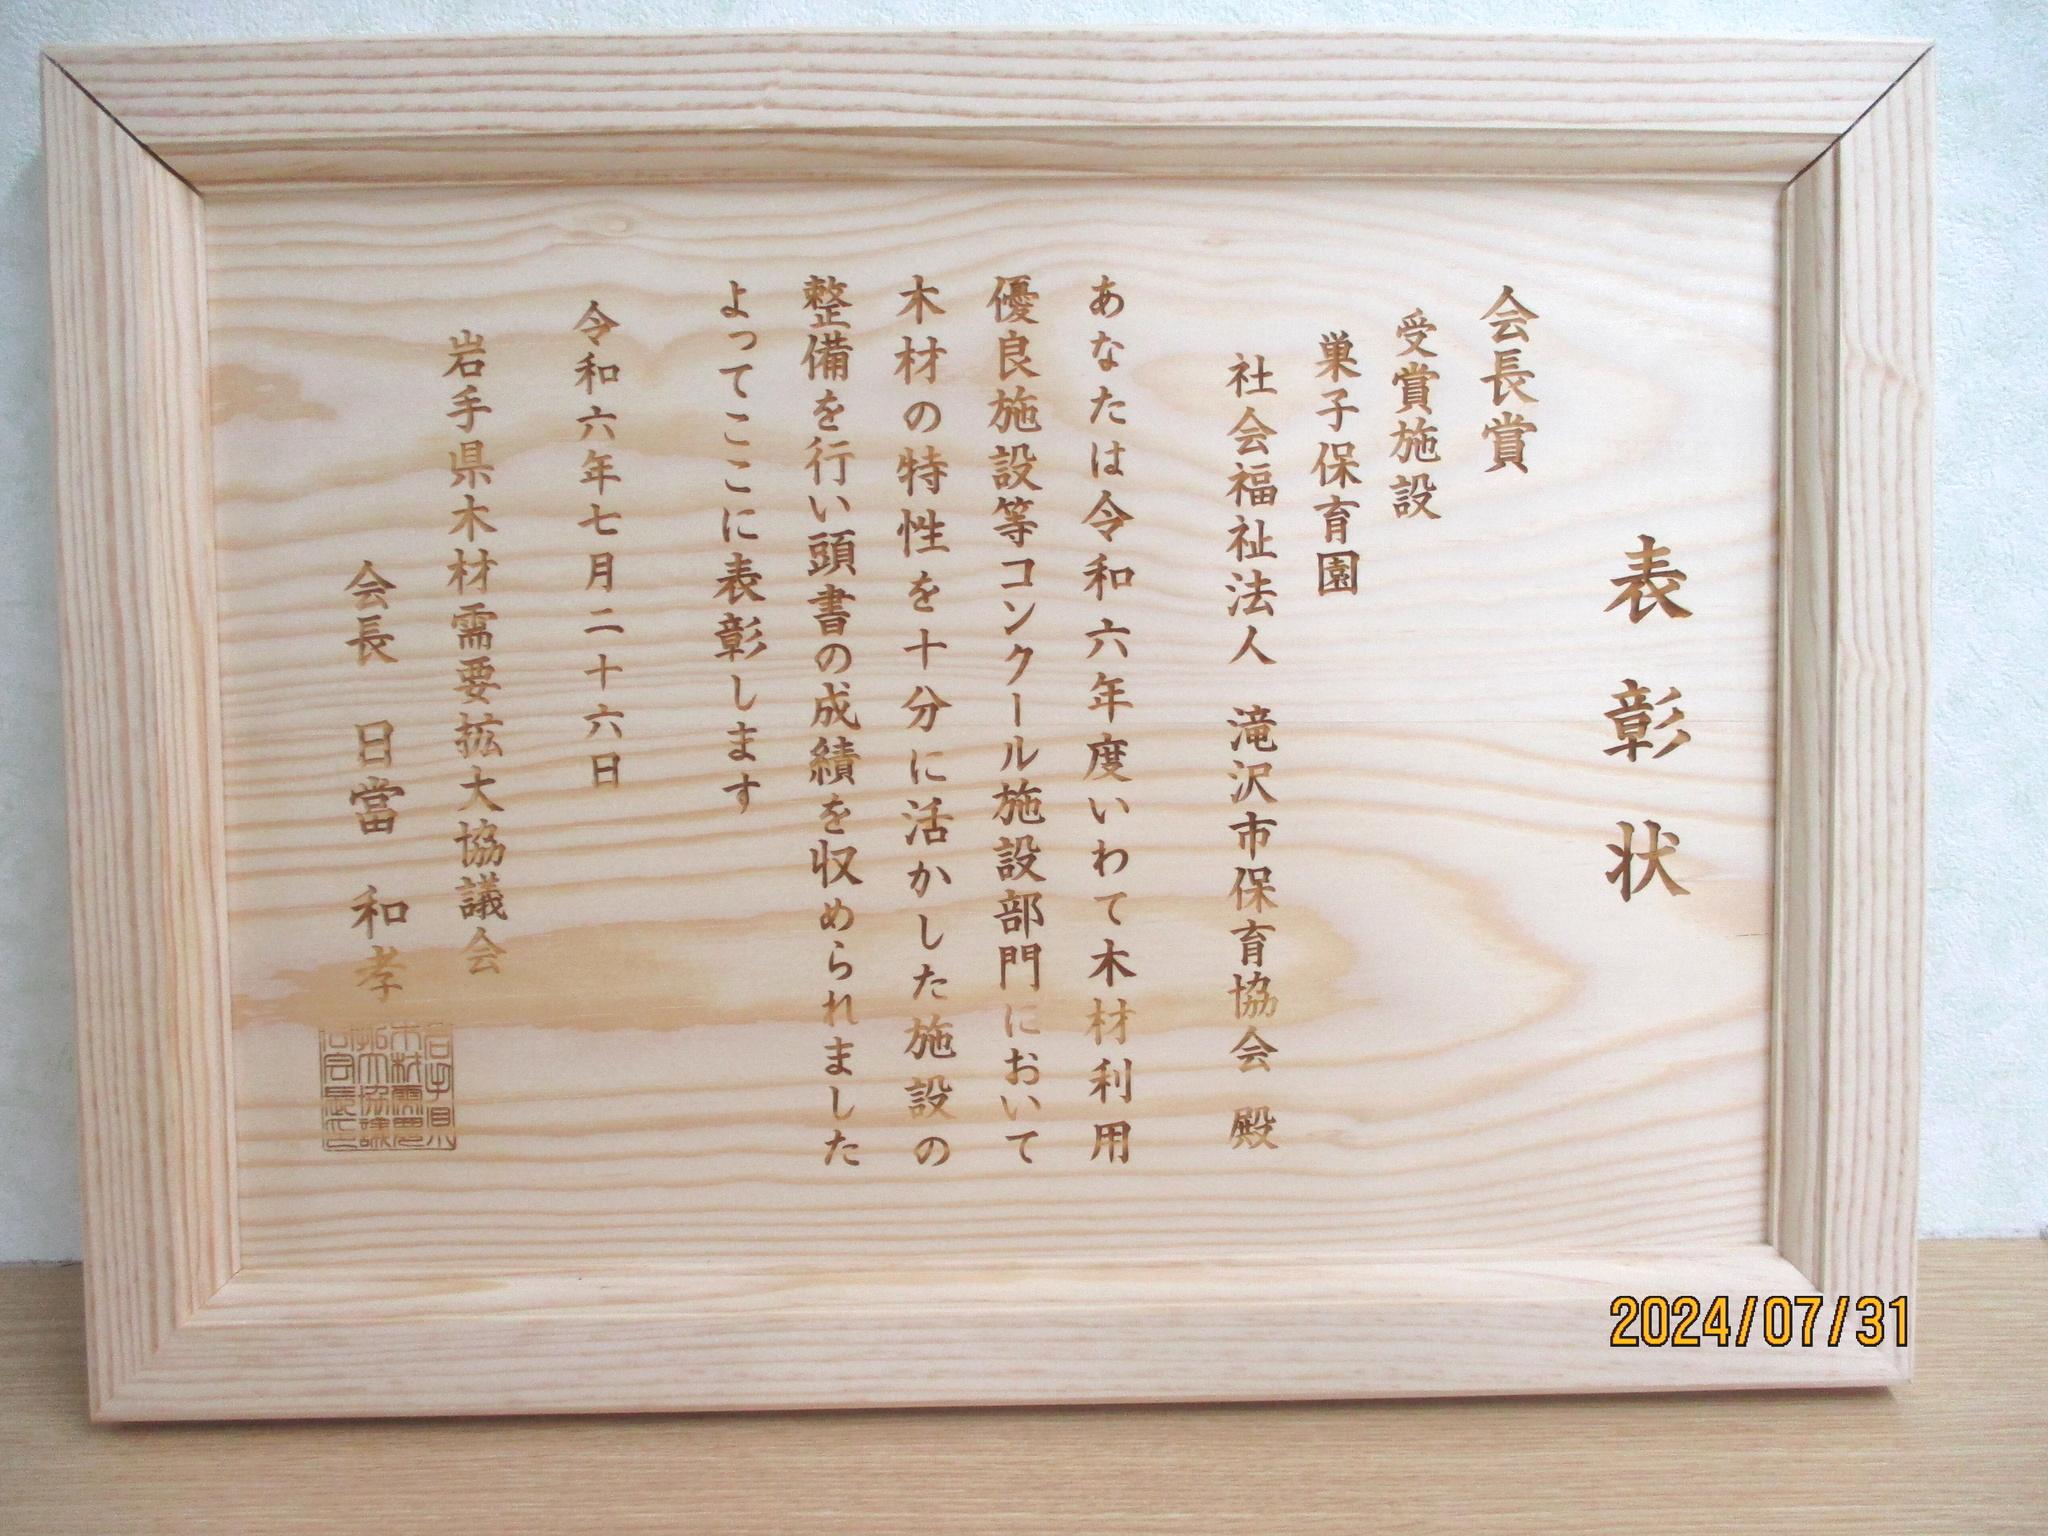 表彰状
会長賞
受賞施設
巣子保育園
社会福祉法人 滝沢市保育協会 殿
あなたは令和六年度いわて木材利用
優良施設等コンクール施設部門において
木材の特性を十分に活かした施設の
整備を行い頭書の成績を収められました
よってここに表彰します
令和六年七月二十六日
岩手県木材需要拡大協議会
会長 日當 和孝
2024/07/31